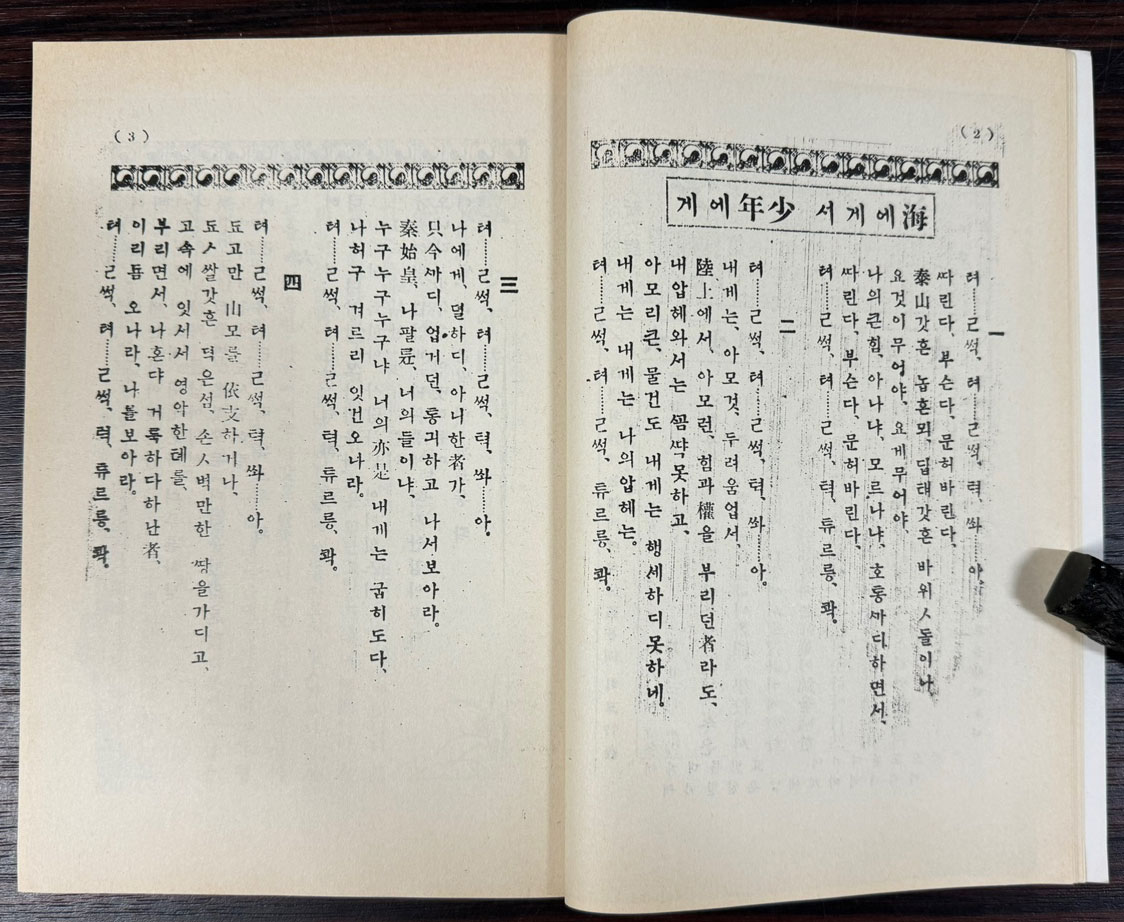 (2)
海에게서 少年에게
一
텨……ㄹ썩, 텨……ㄹ썩, 텩, 쏴……아.
ᄯᅡ린다, 부슨다, 문허바린다,
泰山갓흔 놉흔뫼, 딥태갓흔 바위ㅅ돌이나,
요것이무어야, 요게무어야,
나의큰힘, 아나냐, 모르나냐, 호통ᄭᅡ디하면서,
ᄯᅡ린다, 부슨다, 문허바린다,
텨……ㄹ썩, 텨……ㄹ썩, 텩, 튜르릉, 콱.
二
텨……ㄹ썩, 텨……ㄹ썩, 텩, 쏴……아.
내게는, 아모것, 두려움업서,
陸上에서, 아모런, 힘과權을 부리던者라도,
내압헤와서는 ᄭᅩᆷᄶᅡᆨ못하고,
아모리큰, 물건도 내게는 행세하디못하네.
내게는 내게는 나의압헤는.
텨……ㄹ썩, 텨……ㄹ썩, 텩, 튜르릉, 콱.
(3)
三
텨……ㄹ썩, 텨……ㄹ썩, 텩, 쏴……아.
나에게, 덜하디, 아니한者가,
只今ᄭᅡ디, 업거던, 통긔하고 나서보아라.
秦始皇, 나팔륜, 너의들이냐,
누구누구누구냐 너의亦是 내게는 굽히도다,
나허구 겨르리 잇건오나라.
텨……ㄹ썩, 텨……ㄹ썩, 텩, 튜르릉, 콱.
四
텨……ㄹ썩, 텨……ㄹ썩, 텩, 쏴……아.
됴고만 山모를 依支하거나,
됴ㅅ쌀갓흔 뎍은섬, 손ㅅ벽만한 ᄯᅡᆼ을가디고,
고속에 잇서서 영악한톄를,
부리면서, 나혼댜 거룩하다하난者,
이리듐 오나라, 나를보아라.
텨……ㄹ썩, 텨……ㄹ썩, 텩, 튜르릉, 콱.